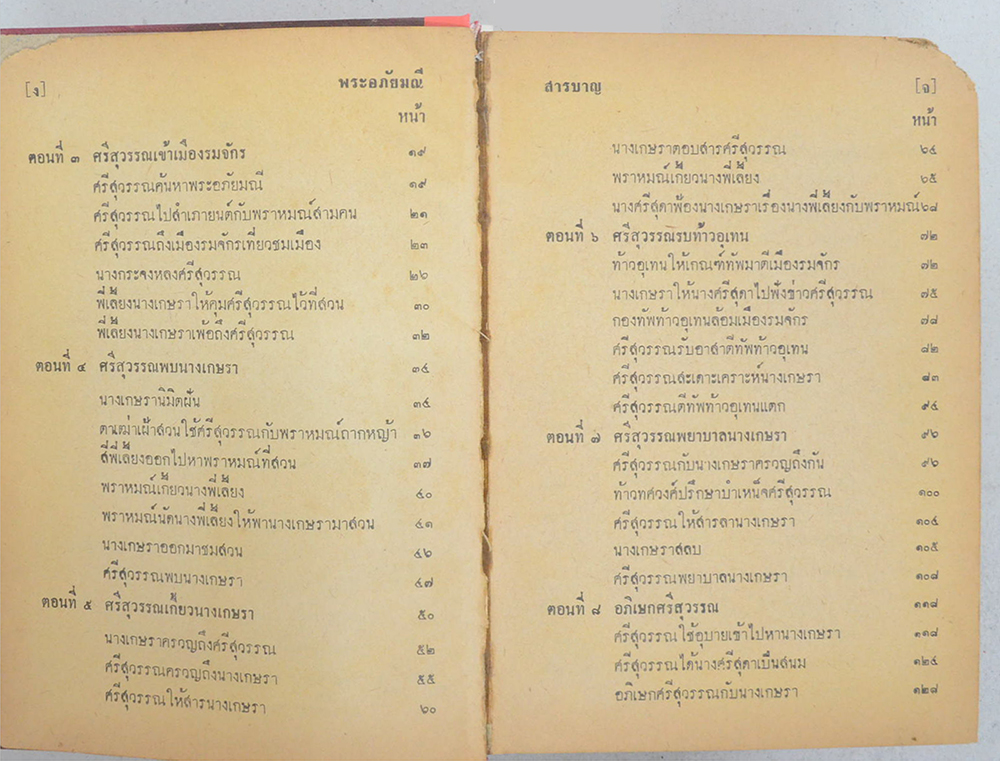 [ง] พระอภัยมณี
หน้า
ตอนที่ ๓ ศรีสุวรรณเข้าเมืองรมจักร ๑๙
ศรีสุวรรณค้นหาพระอภัยมณี ๑๙
ศรีสุวรรณไปสำเภายนต์กับพราหมณ์สามคน ๒๑
ศรีสุวรรณถึงเมืองรมจักรเที่ยวชมเมือง ๒๓
นางกระจงหลงศรีสุวรรณ ๒๖
พี่เลี้ยงนางเกษราให้คุมศรีสุวรรณไว้ที่สวน ๓๐
พี่เลี้ยงนางเกษราเพ้อถึงศรีสุวรรณ ๓๒
ตอนที่ ๔ ศรีสุวรรณพบนางเกษรา ๓๔
นางเกษรานิมิตฝัน ๓๔
ตาเฒ่าเฝ้าสวนใช้ศรีสุวรรณกับพราหมณ์ถากหญ้า ๓๖
สี่พี่เลี้ยงออกไปหาพราหมณ์ที่สวน ๓๗
พราหมณ์เกี้ยวนางพี่เลี้ยง ๔๐
พราหมณ์นัดนางพี่เลี้ยงให้พานางเกษรามาสวน ๔๑
นางเกษราออกมาชมสวน ๔๖
ศรีสุวรรณพบนางเกษรา ๔๗
ตอนที่ ๕ ศรีสุวรรณเกี้ยวนางเกษรา ๕๐
นางเกษราครวญถึงศรีสุวรรณ ๕๒
ศรีสุวรรณครวญถึงนางเกษรา ๕๕
ศรีสุวรรณให้สารนางเกษรา ๖๐
สารบาญ [จ]
หน้า
นางเกษราตอบสารศรีสุวรรณ ๖๔
พราหมณ์เกี้ยวนางพี่เลี้ยง ๖๕
นางศรีสุดาฟ้องนางเกษราเรื่องนางพี่เลี้ยงกับพราหมณ์ ๖๘
ตอนที่ ๖ ศรีสุวรรณรบท้าวอุเทน ๗๒
ท้าวอุเทนให้เกณฑ์ทัพมาตีเมืองรมจักร ๗๒
นางเกษราให้นางศรีสุดาไปฟังข่าวศรีสุวรรณ ๗๕
กองทัพท้าวอุเทนล้อมเมืองรมจักร ๗๘
ศรีสุวรรณรับอาสาตีทัพท้าวอุเทน ๘๒
ศรีสุวรรณสะเดาะเคราะห์นางเกษรา ๘๓
ศรีสุวรรณตีทัพท้าวอุเทนแตก ๙๔
ตอนที่ ๗ ศรีสุวรรณพยาบาลนางเกษรา ๙๖
ศรีสุวรรณกับนางเกษราครวญถึงกัน ๙๖
ท้าวทศวงศ์ปรึกษาบำเหน็จศรีสุวรรณ ๑๐๐
ศรีสุวรรณให้สารลานางเกษรา ๑๐๔
นางเกษราสลบ ๑๐๕
ศรีสุวรรณพยาบาลนางเกษรา ๑๐๘
ตอนที่ ๘ อภิเษกศรีสุวรรณ ๑๑๘
ศรีสุวรรณใช้อุบายเข้าไปหานางเกษรา ๑๑๘
ศรีสุวรรณได้นางศรีสุดาเป็นสนม ๑๒๔
อภิเษกศรีสุวรรณกับนางเกษรา ๑๒๘